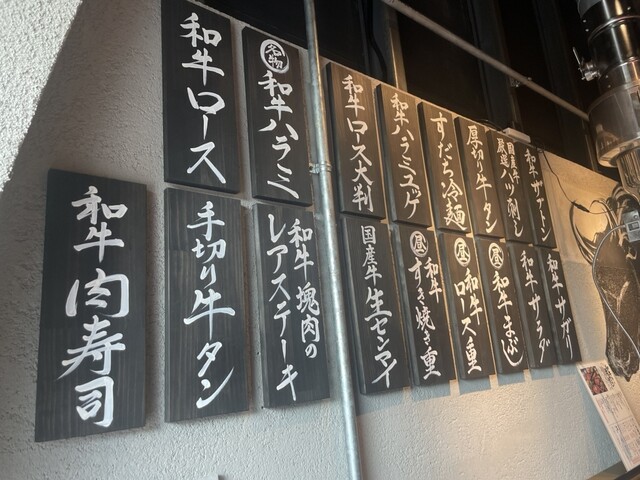 和牛ロース
名物
和牛ハラミ
和牛ロース大判
和牛ハラミユッケ
すだち冷麺
厚切り牛タン
国産牛
厳選ハツ刺し
和牛ザブトン
和牛肉寿司
手切り牛タン
和牛塊肉の
レアステーキ
国産牛生センマイ
昼和牛
すき焼き重
昼和牛
ロース重
昼和牛まぶし
和牛サラダ
和牛サガリ